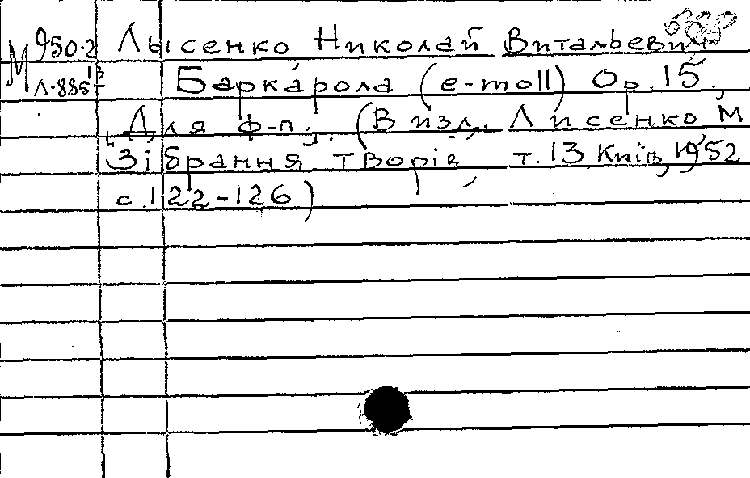 М 950-2 Лысенко Николай Витальевич
Л-885 13 Баркарола (e-moll) Op. 15,
Для ф-п. (В изд. Лисенко М
Зібрання творів т. 13 Київ, 1952
с. 122-126)